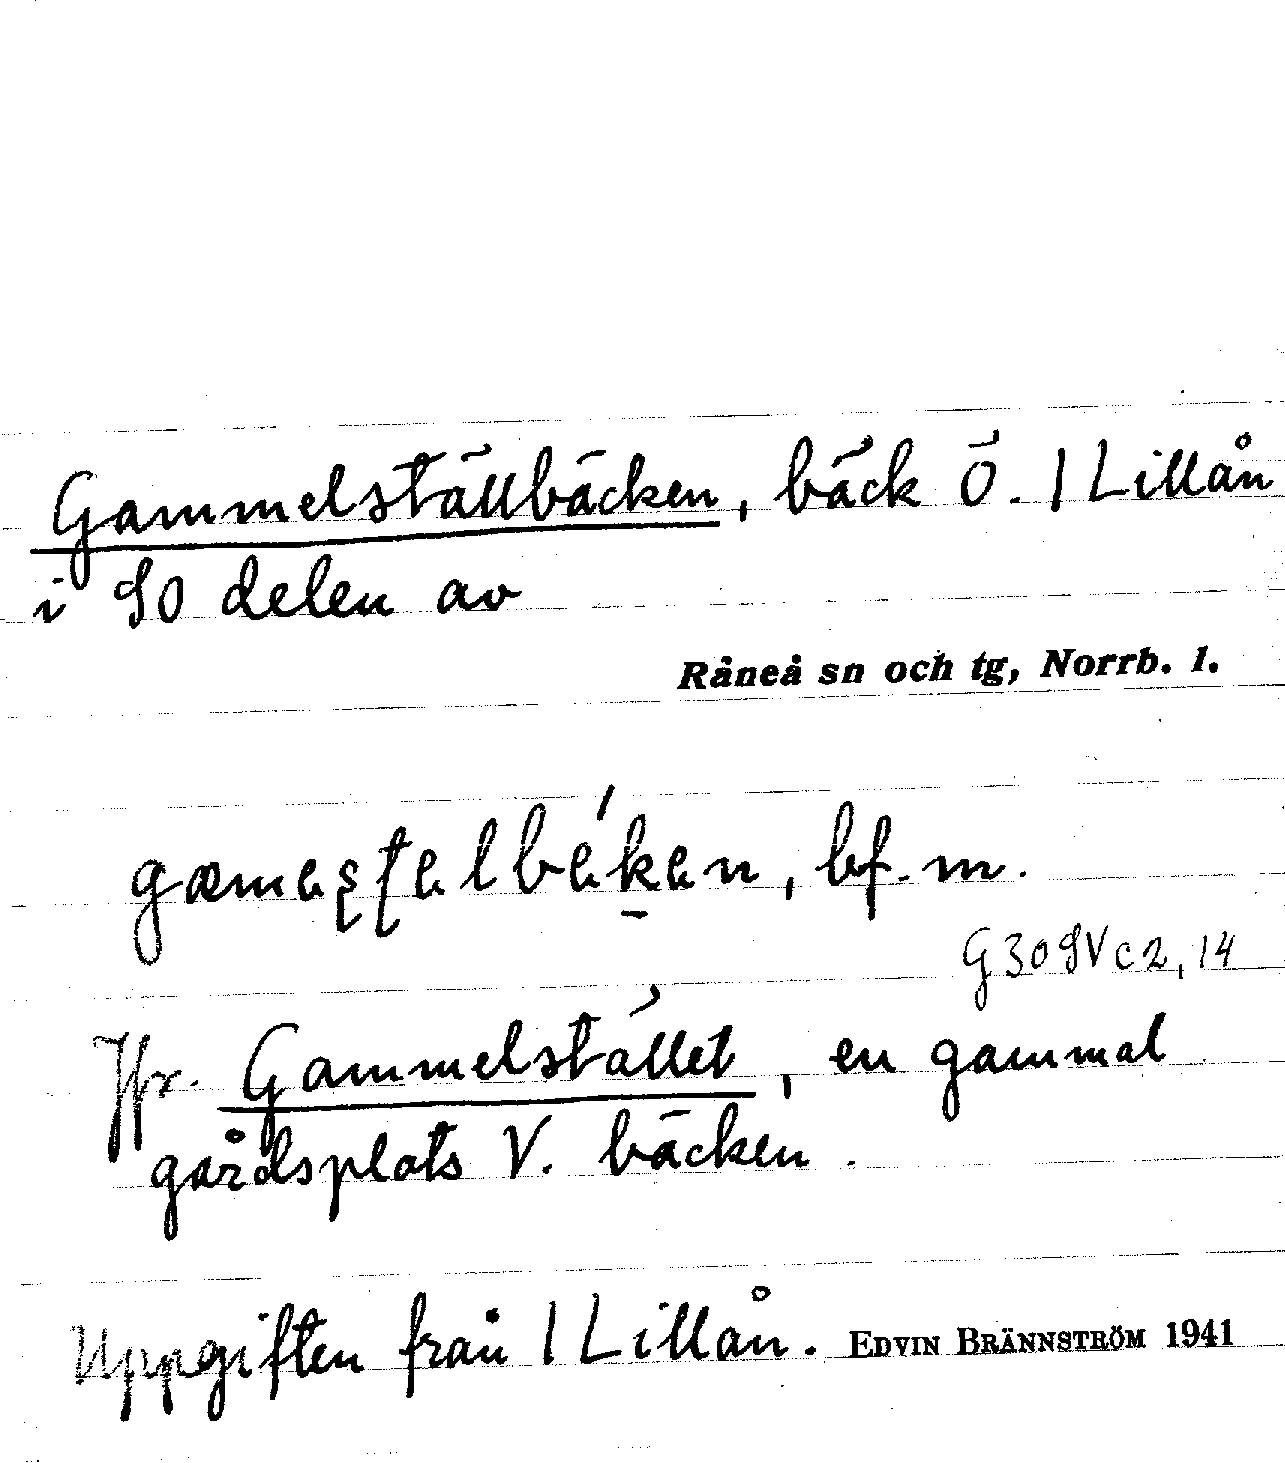 Gammelställbäcken, bäck Ö. 1 Lillån
i SO delen av
Råneå sn och tg, Norrb. l.
bf. m.
G30SVc2,14
Jfr. Gammelstället, en gammal
gårdsplats V. bäcken.
Uppgiften från 1 Lillån. EDVIN BRÄNNSTRÖM 1941